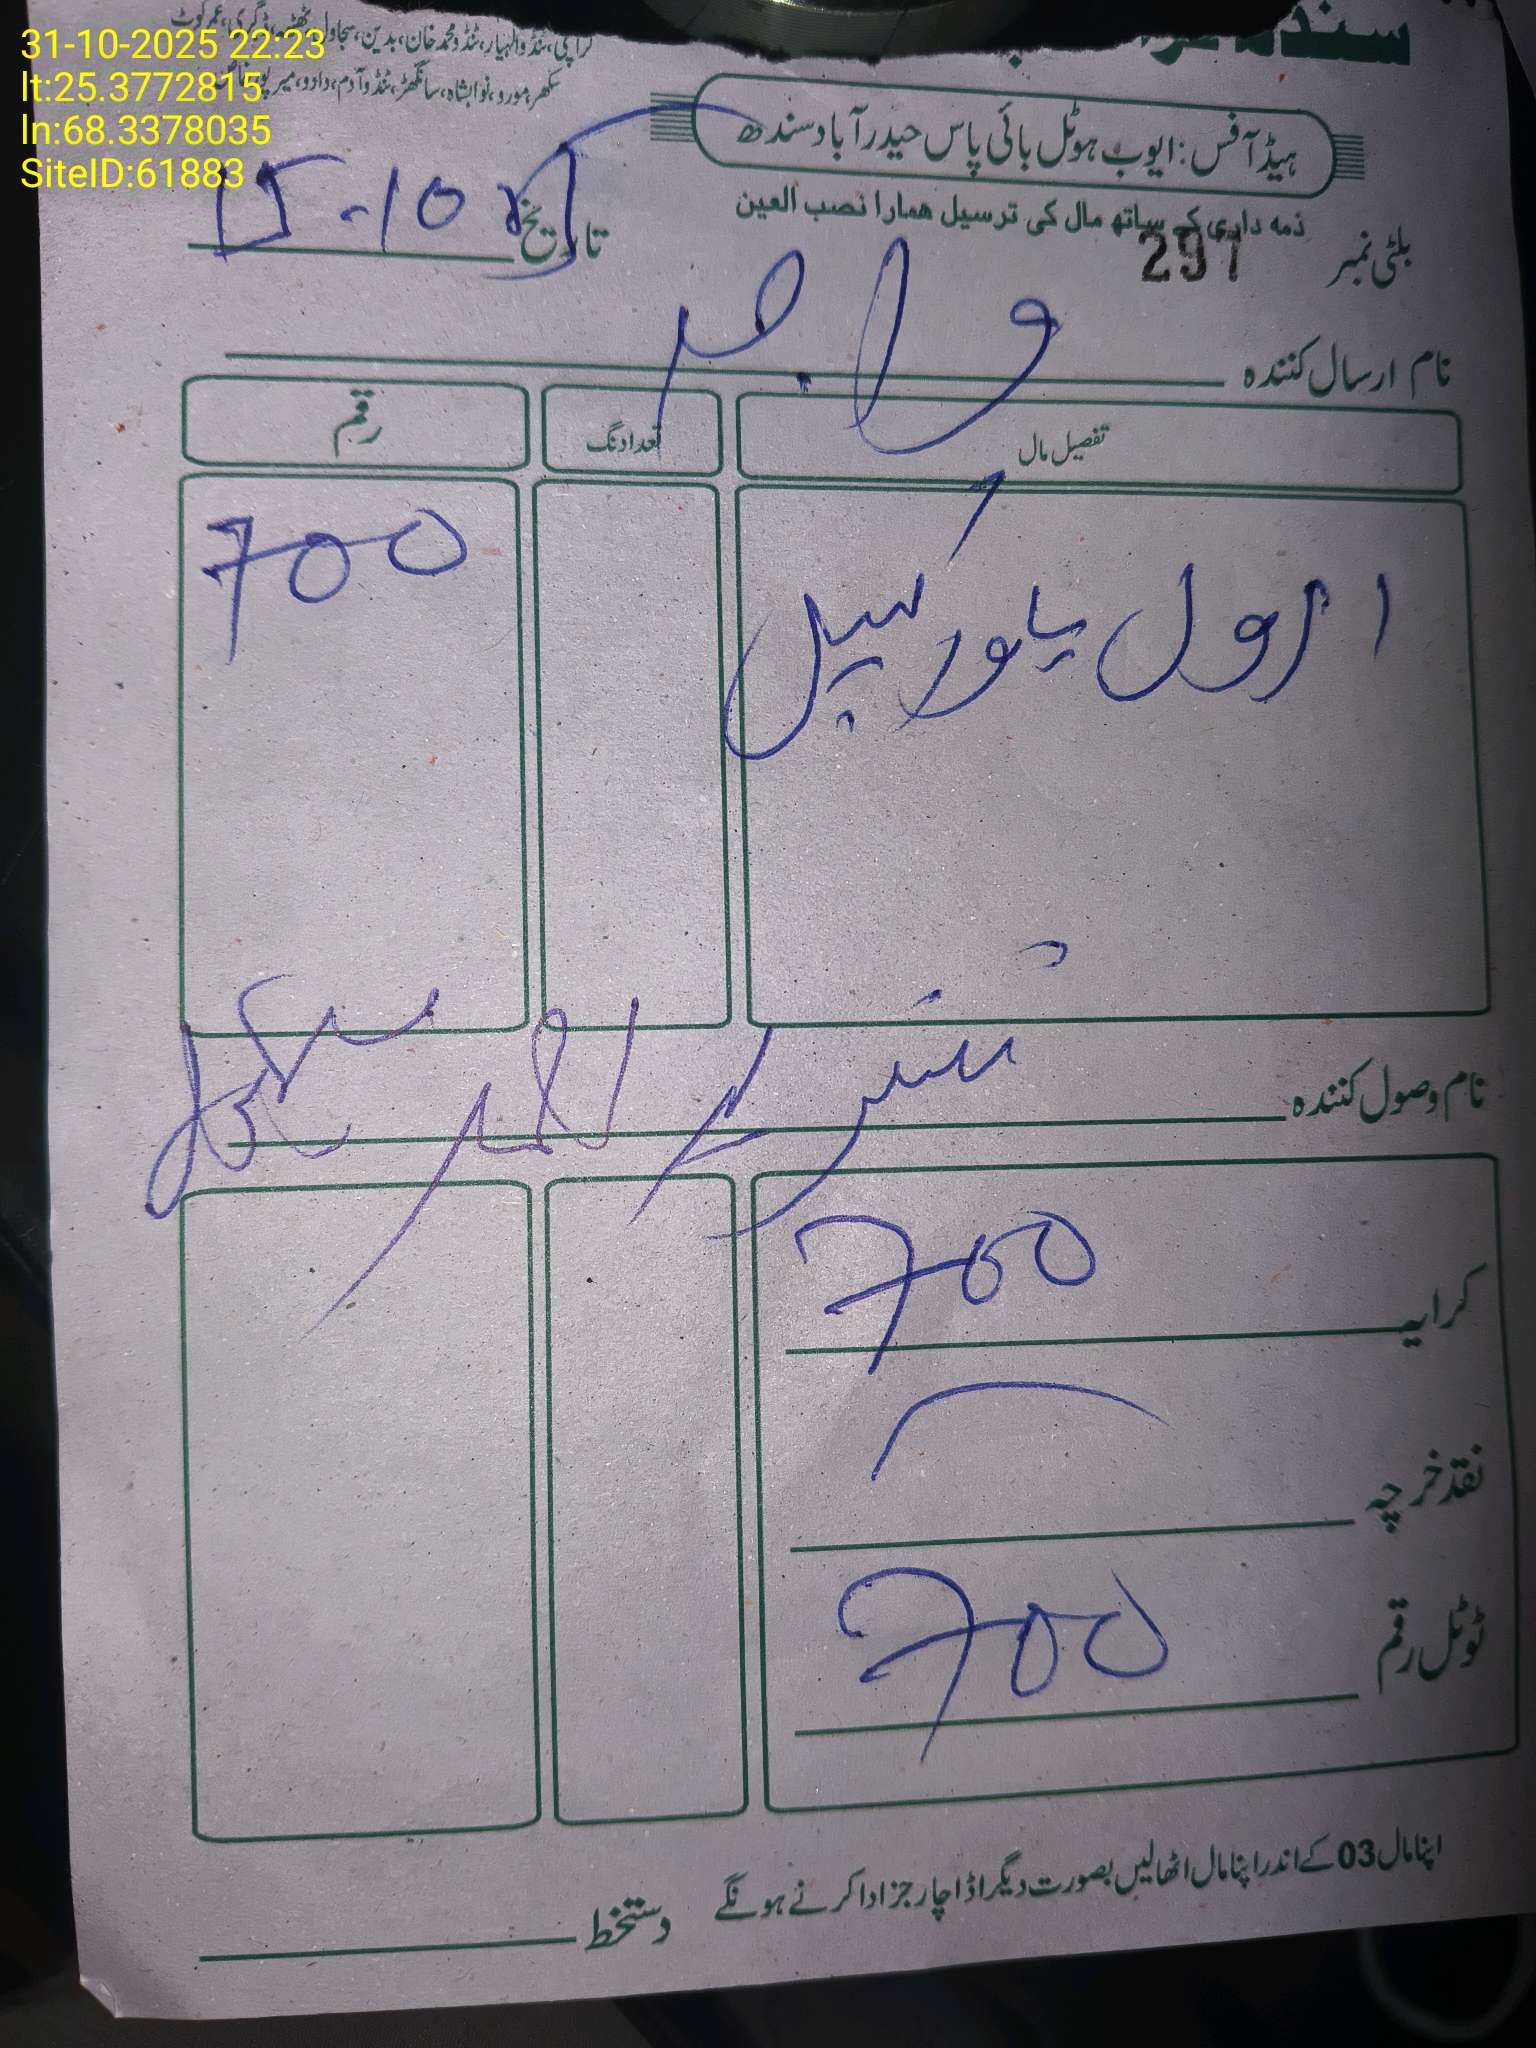 31-10-2025 22:23
lt:25.3772815
ln:68.3378035
SiteID:61883
کراچی، ٹنڈوالہیار، ٹنڈومحمدخان، بدین، سجاول، ٹھٹھہ، ڈگری، عمرکوٹ
سکھر، مورو، نوابشاہ، سانگھڑ، ٹنڈوآدم، دادو، میرپورخاص
ہیڈآفس: ایوب ہوٹل بائی پاس حیدرآباد سندھ
ذمہ داری کے ساتھ مال کی ترسیل ہمارا نصب العین
بلٹی نمبر 297
تاریخ
نام ارسال کنندہ
تفصیل مال تعدادنگ رقم
1 رول پاور کیبل 700
نام وصول کنندہ
کرایہ 700
نقد خرچہ
ٹوٹل رقم 700
اپنا مال 03 کے اندر اپنا مال اٹھالیں بصورت دیگر اڈا چارجز ادا کرنے ہونگے
دستخط